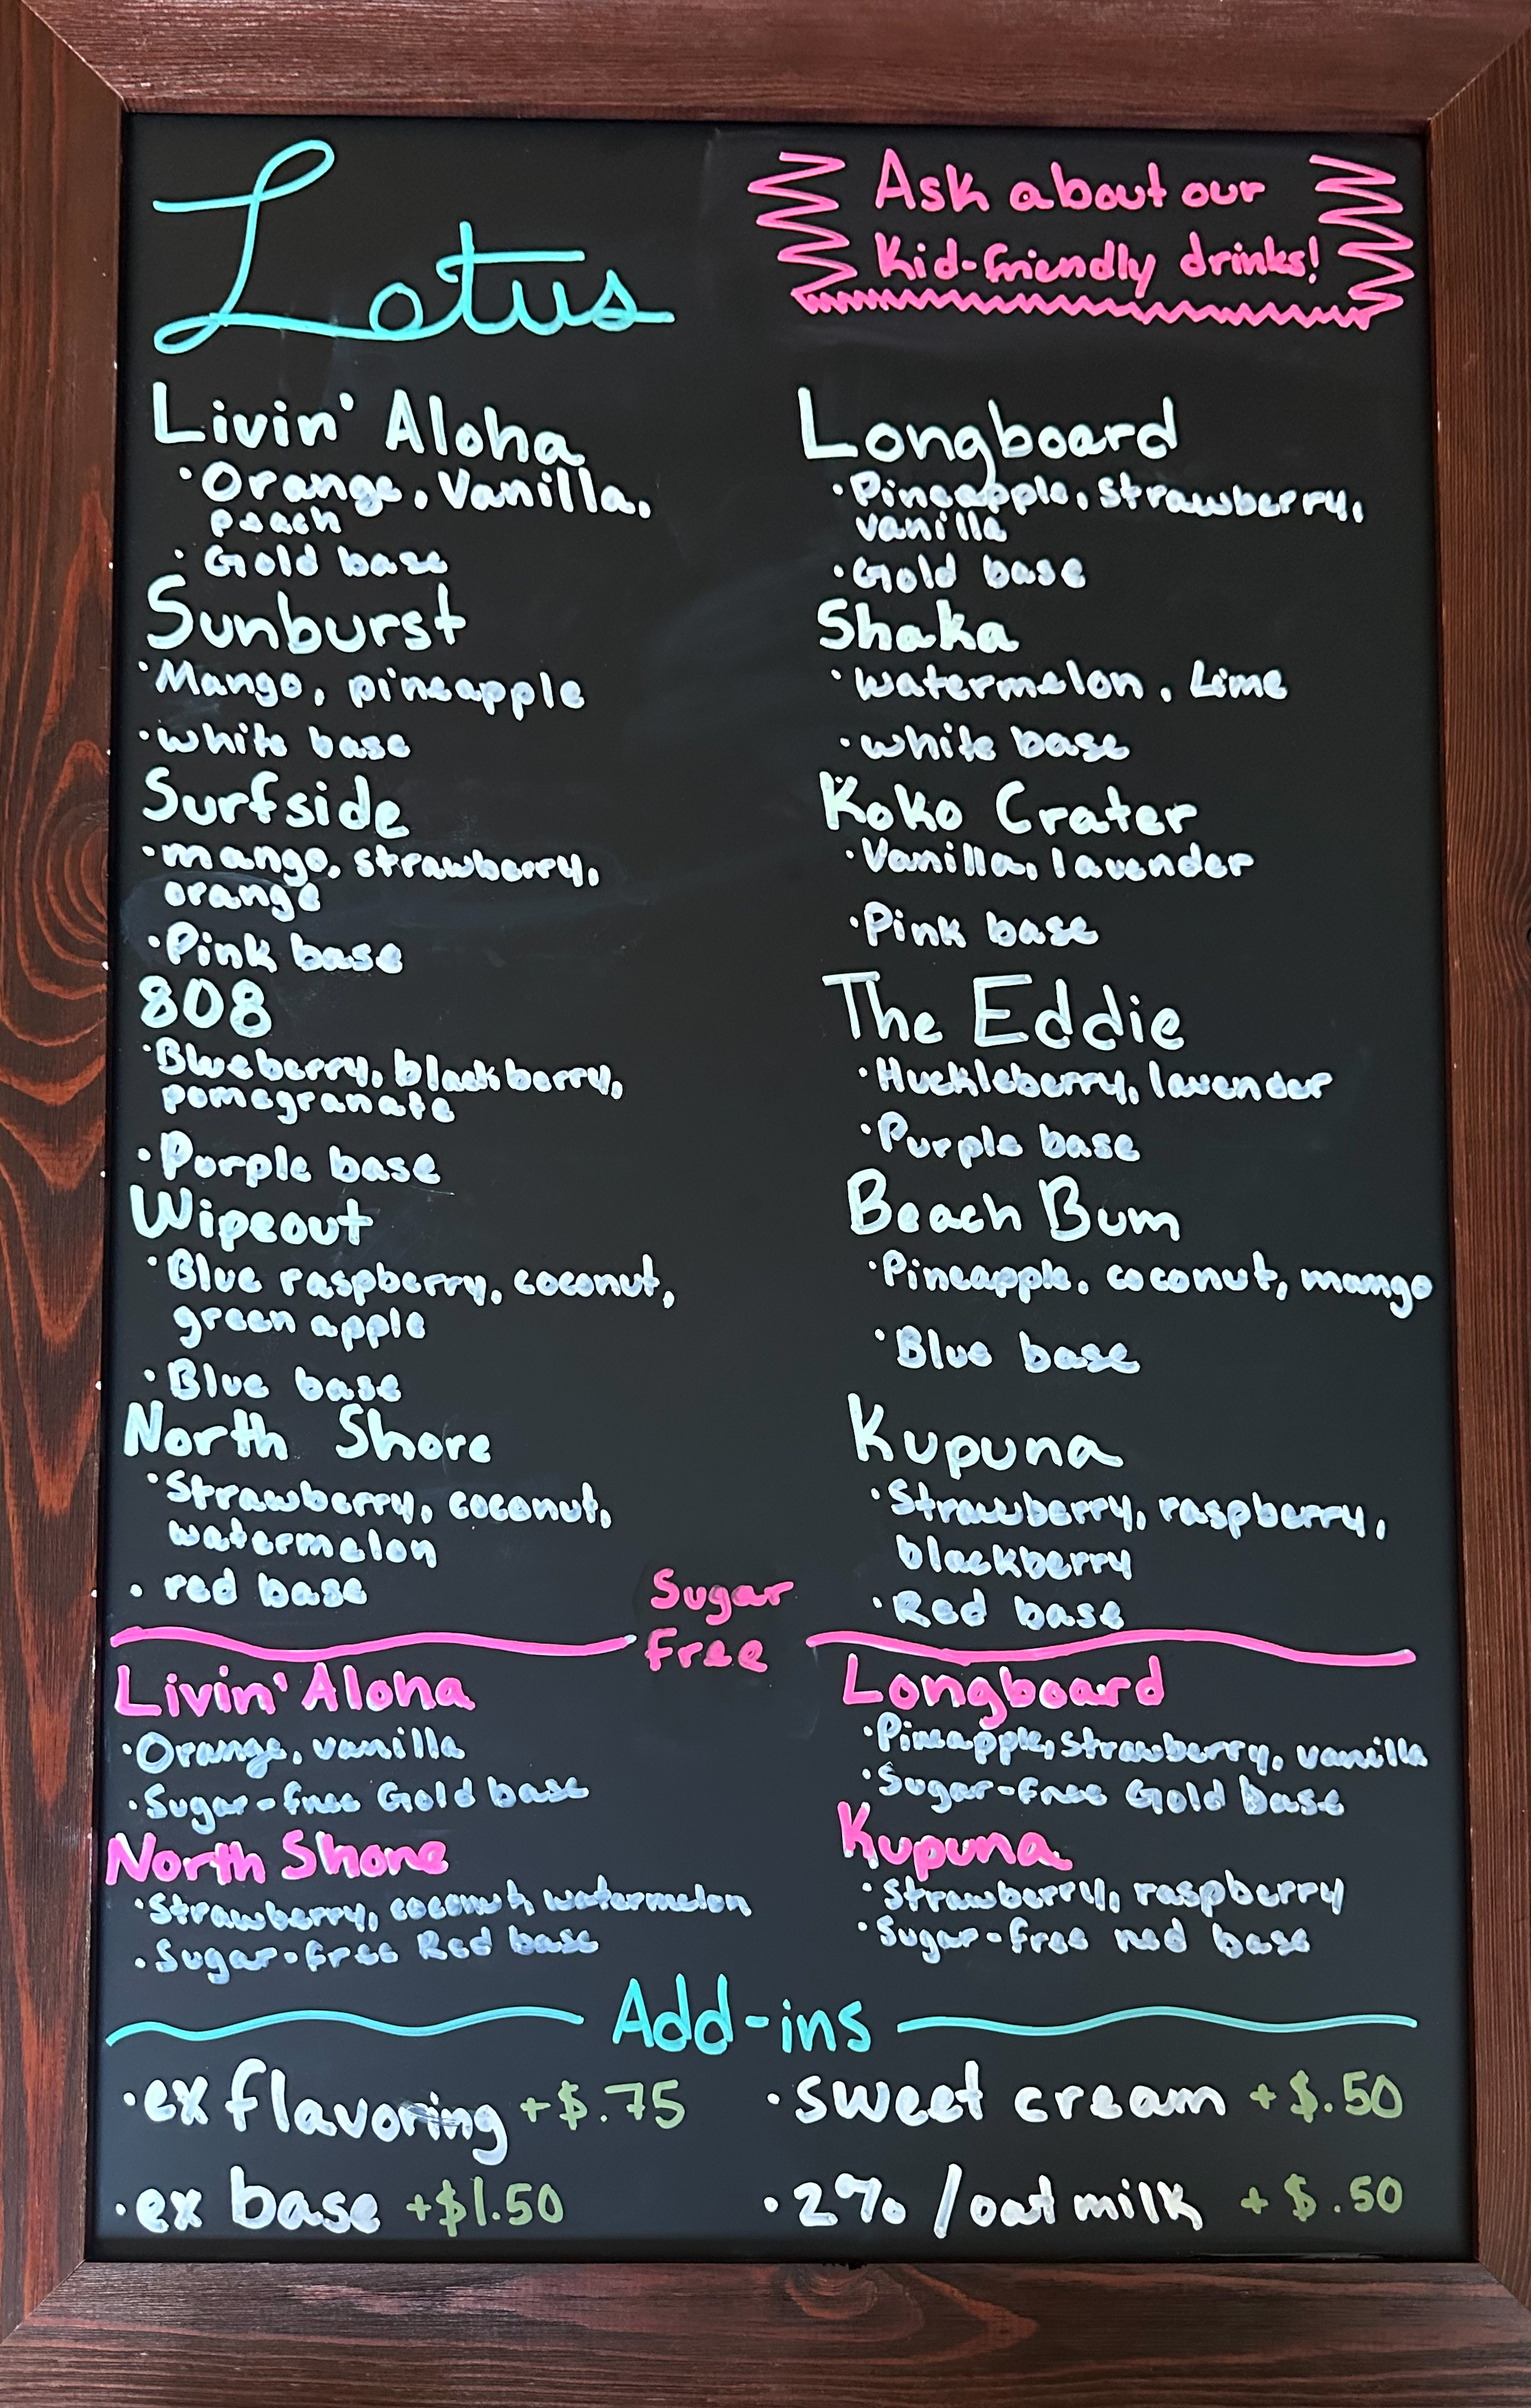 Lotus
Ask about our
Kid-friendly drinks!
Livin' Aloha
•Orange, Vanilla,
peach
•Gold base
Sunburst
•Mango, pineapple
•white base
Surfside
•mango, strawberry,
orange
•Pink base
808
•Blueberry, blackberry,
pomegranate
•Purple base
Wipeout
•Blue raspberry, coconut,
green apple
•Blue base
North Shore
•Strawberry, coconut,
watermelon
• red base
Longboard
•Pineapple, strawberry,
vanilla
•Gold base
Shaka
•watermelon, Lime
•white base
Koko Crater
•Vanilla, lavender
•Pink base
The Eddie
•Huckleberry, lavender
•Purple base
Beach Bum
•Pineapple, coconut, mango
•Blue base
Kupuna
•Strawberry, raspberry,
blackberry
•Red base
Sugar
free
Livin' Aloha
•Orange, vanilla
•Sugar-free Gold base
North Shore
•Strawberry, coconut, watermelon
•Sugar-free Red base
Longboard
•Pineapple, strawberry, vanilla
•Sugar-free Gold base
Kupuna
•Strawberry, raspberry
•Sugar-free red base
Add-ins
•ex flavoring +$.75
•ex base +$1.50
•sweet cream +$.50
•2% /oat milk +$.50